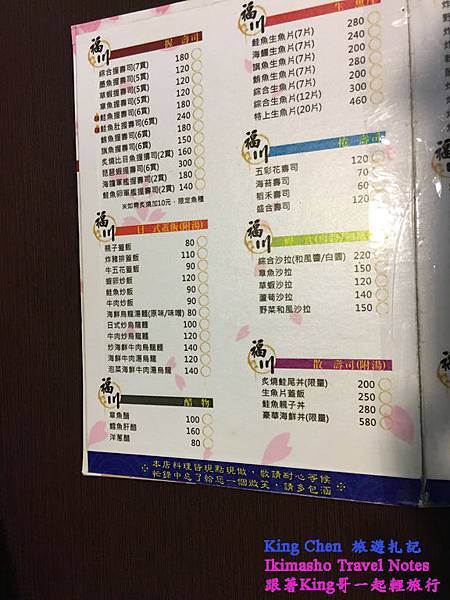 福川
握 壽司
綜合握壽司(7貫) 180
墨魚握壽司(5貫) 120
草蝦握壽司(5貫) 120
章魚握壽司(5貫) 120
鮭魚握壽司(6貫) 180
鮭魚肚握壽司(6貫) 240
鮪魚握壽司(6貫) 180
旗魚握壽司(6貫) 180
炙燒比目魚握壽司(2貫) 160
琵琶蝦握壽司(3貫) 300
海膽軍艦握壽司(2貫) 180
鮭魚卵軍艦握壽司(2貫) 140
※如需炙燒加10元，限定魚種
福川
日 式蓋飯(附湯)
親子蓋飯 80
炸豬排蓋飯 110
牛五花蓋飯 90
蝦卵炒飯 90
鮭魚炒飯 90
牛肉炒飯 90
海鮮烏龍湯麵(原味/味噌) 80
日式炒烏龍麵 120
牛肉炒烏龍麵 120
炒海鮮牛肉烏龍麵 140
海鮮牛肉湯烏龍 120
泡菜海鮮牛肉湯烏龍 140
福川
醋 物
章魚醋 100
鱈魚肝醋 160
洋蔥醋 80
福川
生 魚片
280
鮭魚生魚片(7片) 240
海鱺生魚片(7片) 240
旗魚生魚片(7片) 240
鮪魚生魚片(7片) 240
綜合生魚片(7片) 260
綜合生魚片(12片) 300
特上生魚片(20片) 460
福川
捲 壽司
五彩花壽司 120
海苔壽司 60
稻禾壽司 60
盛合壽司 120
福川
綜合沙拉(和風醬/白醬) 220
章魚沙拉 150
草蝦沙拉 150
蘆筍沙拉 140
野菜和風沙拉 150
福川
散 壽司(附湯)
炙燒鮭尾丼(限量) 200
生魚片蓋飯 250
鮭魚親子丼 280
豪華海鮮丼(限量) 580
※ 本店料理皆現點現做，敬請耐心等候
忙錄中忘了給您一個微笑，請多包涵 ※
King Chen 旅遊札記
Ikimasho Travel Notes
跟著King哥一起輕旅行